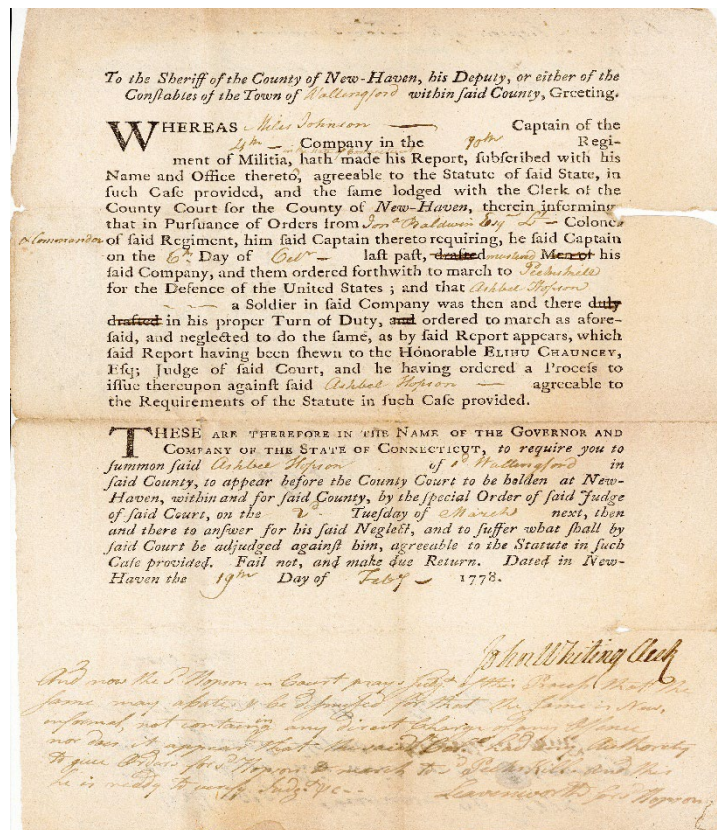 To the Sheriff of the County of New-Haven, his Deputy, or either of the
Conſtables of the Town of Wallingford within ſaid County, Greeting.
WHEREAS Miles Johnson — Captain of the
4th — Company in the 10th Regi-
ment of Militia, hath made his Report, ſubſcribed with his
Name and Office thereto, agreeable to the Statute of ſaid State, in
ſuch Caſe provided, and the ſame lodged with the Clerk of the
County Court for the County of New-Haven, therein informing
that in Purſuance of Orders from Jona Baldwin Esqr Lt — Colonel
& Commander of ſaid Regiment, him ſaid Captain thereto requiring, he ſaid Captain
on the 6th Day of Octr — laſt paſt, drafted mustered Men of his
ſaid Company, and them ordered forthwith to march to Peekskill
for the Defence of the United States ; and that Ashbel Hopson
— — a Soldier in ſaid Company was then and there duly
drafted in his proper Turn of Duty, and ordered to march as afore-
ſaid, and neglected to do the ſame, as by ſaid Report appears, which
ſaid Report having been ſhewn to the Honorable ELIHU CHAUNCEY,
Eſq; Judge of ſaid Court, and he having ordered a Proceſs to
iſſue thereupon againſt ſaid Ashbel Hopson — agreeable to
the Requirements of the Statute in ſuch Caſe provided.
THESE ARE THEREFORE IN THE NAME OF THE GOVERNOR AND
COMPANY OF THE STATE OF CONNECTICUT, to require you to
ſummon ſaid Ashbel Hopson of sd Wallingford in
ſaid County, to appear before the County Court to be holden at New-
Haven, within and for ſaid County, by the ſpecial Order of ſaid Judge
of ſaid Court, on the 2d Tueſday of March next, then
and there to anſwer for his ſaid Neglect, and to ſuffer what ſhall by
ſaid Court be adjudged againſt him, agreeable to the Statute in ſuch
Caſe provided. Fail not, and make due Return. Dated in New-
Haven the 19th Day of Feby — 1778.
John Whiting Clerk
And now the sd Hopson in Court prays Judgt of this Process that the
same may abate & be dismissed for that the same is
informal, not containing any direct Charge
nor does it appear that the said had Authority
to give Orders for sd Hopson to march to sd Peekskill and this
he is ready to verify Judgt &c —
Leavenworth for Hopson